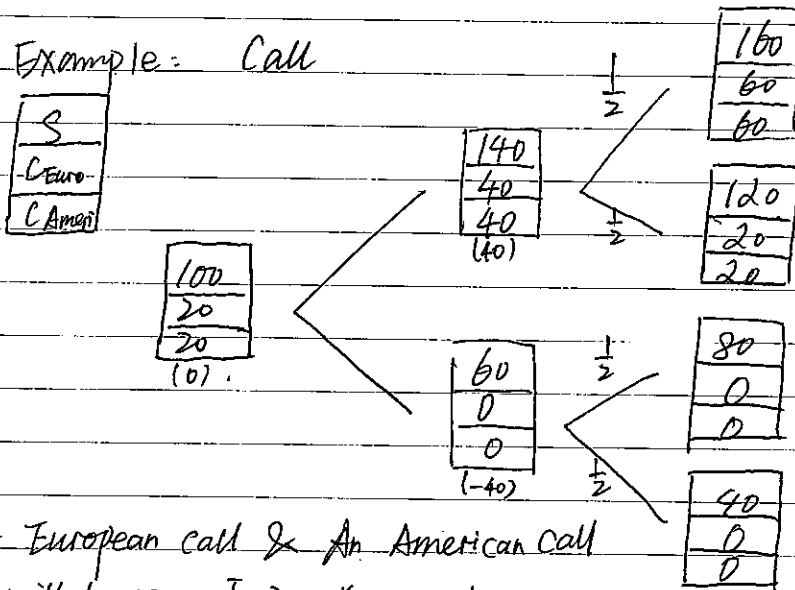 Example: Call
S
C Euro
C Ameri
100
20
20
(0).
140
40
40
(40)
60
0
0
(-40)
1/2
1/2
1/2
1/2
160
60
60
120
20
20
80
0
0
40
0
0
European call & An American Call